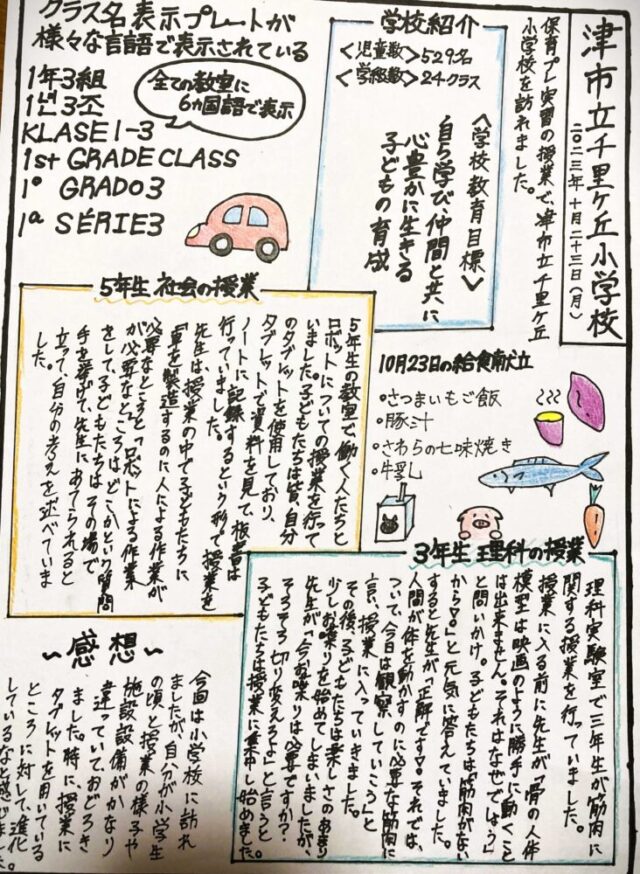 津市立千里ヶ丘小学校
二〇二三年十月二十三日(月)
保育プレ実習の授業で、津市立千里ヶ丘
小学校を訪れました。
学校紹介
<児童数>529名
<学級数>24クラス
<学校教育目標>
自ら学び仲間と共に
心豊かに生きる
子どもの育成
クラス名表示プレートが
様々な言語で表示されている
全ての教室に
6カ国語で表示
1年3組
1년3조
KLASE 1-3
1st GRADE CLASS
1° GRADO 3
1ª SÉRIE 3
10月23日の給食献立
・さつまいもご飯
・豚汁
・さわらの七味焼き
・牛乳
5年生 社会の授業
5年生の教室で、働く人たちと
ロボットについての授業を行って
いました。子どもたちは皆、自分
のタブレットを使用しており、
タブレットで資料を見て、板書は
ノートに記録するという形で授業を
行っていました。
先生は、授業の中で子どもたちに
「車を製造するのに人による作業が
必要なところと「ロボットによる作業
が必要なところはどこかという質問
をして、子どもたちはその場で
手を挙げて、先生にあてられると
立って、自分の考えを述べていま
した。
3年生 理科の授業
理科実験室で三年生が筋肉に
関する授業を行っていました。
授業に入る前に先生が「骨の人体
模型は映画のように勝手に動くこと
は出来ません。それはなぜでしょう」
と問いかけ。子どもたちは「筋肉がない
から!。」と元気に答えていました。
すると先生が「正解です!。それでは、
人間が体を動かすのに必要な筋肉に
ついて、今日は観察していこう」と
言い、授業に入っていきました。
その後、子どもたちは楽しさのあまり
少しお喋りを始めてしまいましたが、
先生が「今、お喋りは必要ですか?
そろそろ切り変えるよ。」と言うと
子どもたちは授業に集中し始めました。
~感想~
今回は小学校に訪れ
ましたが、自分が小学生
の頃と授業の様子や
施設設備がかなり
違っていておどろき
ました。時に、授業に
タブレットを用いている
ところに対して、進化
しているなと感じました。